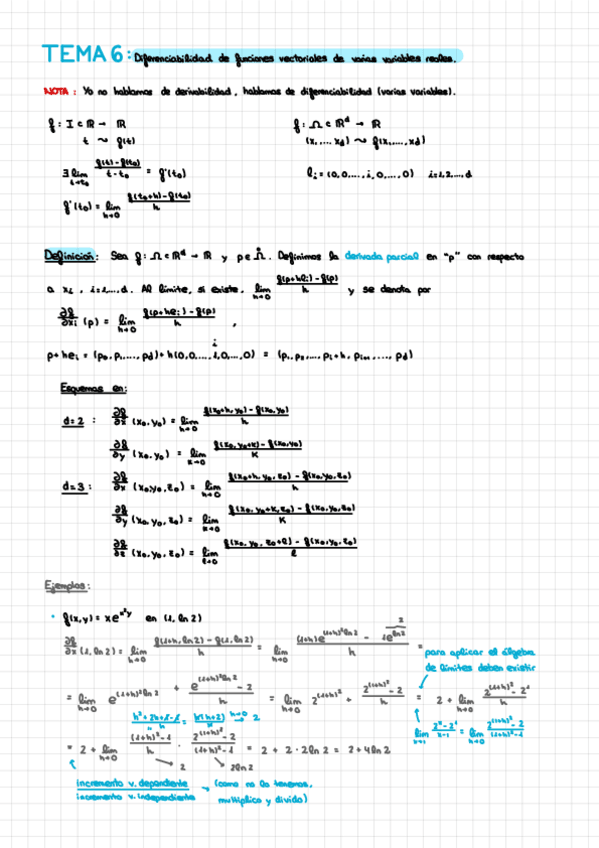 TEMA 6: Diferenciabilidad de funciones vectoriales de varias variables reales.
NOTA: Ya no hablamos de derivabilidad, hablamos de diferenciabilidad (varias variables).
f: I ⊂ ℝ → ℝ
t ↝ f(t)
∃ lim t→t₀ (f(t)-f(t₀))/(t-t₀) = f'(t₀)
f'(t₀) = lim h→0 (f(t₀+h)-f(t₀))/h
f: Ω ⊂ ℝᵈ → ℝ
(x₁,..., x_d) ↝ f(x₁,..., x_d)
l_i = (0,0,..., i, 0,..., 0) i=1,2,...,d
Definición: Sea f: Ω ⊂ ℝᵈ → ℝ y p ∈ Ω̊. Definimos la derivada parcial en "p" con respecto
a x_i, i=1,...,d. Al límite, si existe, lim h→0 (f(p+he_i)-f(p))/h y se denota por
∂f/∂x_i (p) = lim h→0 (f(p+he_i)-f(p))/h ,
i
p+he_i = (p₀, p₁,..., p_d)+h(0,0,..., 1,0,...,0) = (p₁, p₂,..., p_i+h, p_i+1,..., p_d)
Esquemas en:
d=2 : ∂f/∂x (x₀,y₀) = lim h→0 (f(x₀+h, y₀) - f(x₀,y₀))/h
∂f/∂y (x₀,y₀) = lim k→0 (f(x₀, y₀+k) - f(x₀,y₀))/k
d=3 : ∂f/∂x (x₀,y₀,z₀) = lim h→0 (f(x₀+h, y₀, z₀) - f(x₀,y₀,z₀))/h
∂f/∂y (x₀,y₀,z₀) = lim k→0 (f(x₀, y₀+k, z₀) - f(x₀,y₀,z₀))/k
∂f/∂z (x₀,y₀,z₀) = lim l→0 (f(x₀, y₀, z₀+l) - f(x₀,y₀,z₀))/l
Ejemplos:
• f(x,y) = xe^(x²y) en (1, ln2)
2
∂f/∂x (1,ln2) = lim h→0 (f(1+h, ln2) - f(1, ln2))/h = lim h→0 ((1+h)e^((1+h)²ln2) - 1e^(ln2))/h =
para aplicar el álgebra
de límites deben existir
= lim h→0 e^((1+h)²ln2) + (e^((1+h)²ln2) - 2)/h = lim h→0 2^((1+h)²) + (2^((1+h)²) - 2)/h = 2 + lim h→0 (2^((1+h)²) - 2¹)/h
(h²+2h+1-1)/h = h(h+2)/h h→0 → 2
lim x→1 (2ˣ-2¹)/(x-1) = lim h→0 (2^((1+h)²) - 2)/((1+h)²-1)
= 2 + lim h→0 ((1+h)²-1)/h · (2^((1+h)²) - 2)/((1+h)²-1) = 2 + 2·2ln2 = 2+4ln2
2 2ln2
incremento v. dependiente
incremento v. independiente
(como no lo tenemos,
multiplico y divido)